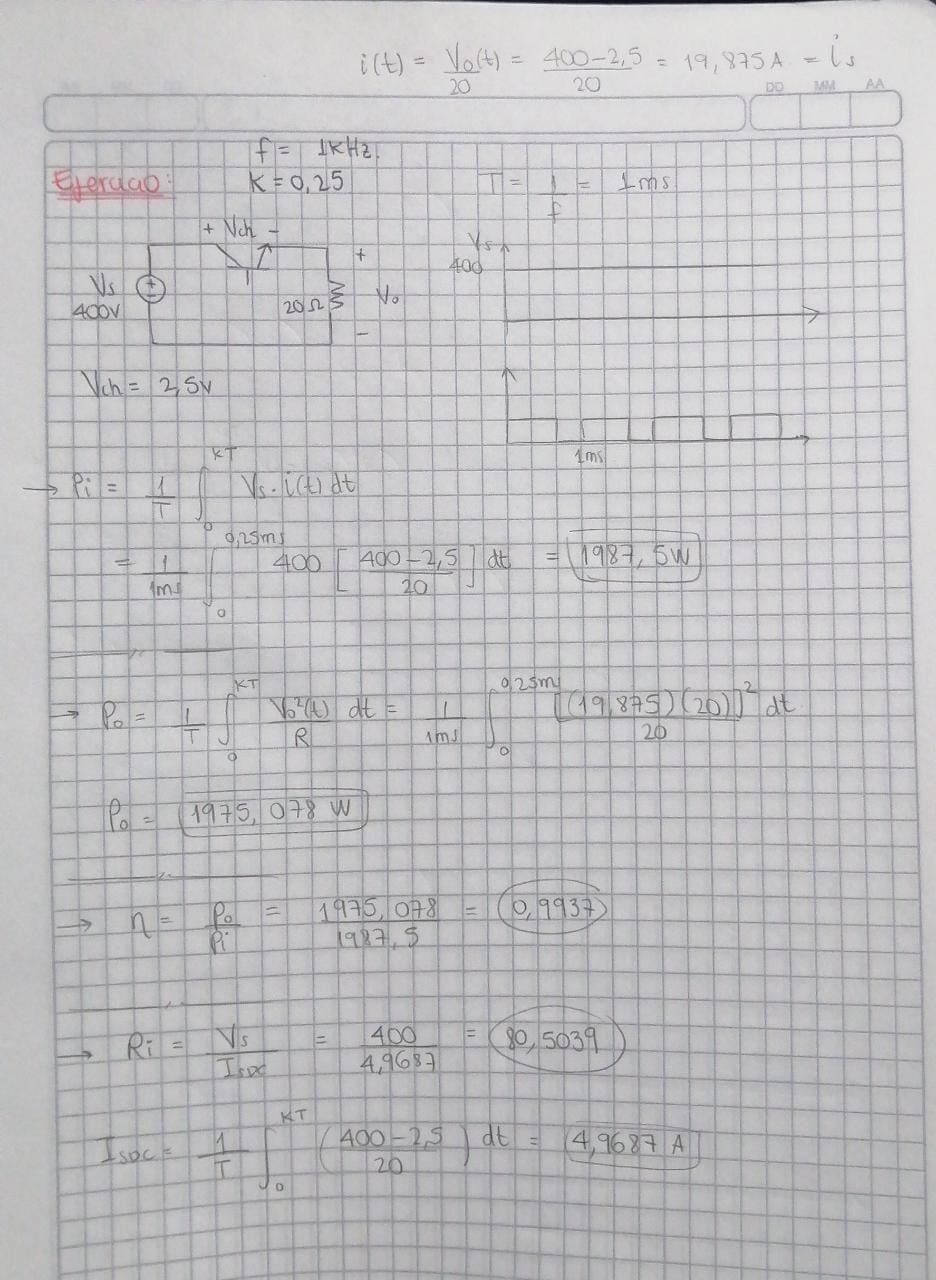 i(t) = Vo(t)/20 = 400-2,5/20 = 19,875 A = is
DD MM AA
f = 1KHz.
Ejercicio: K = 0,25 T = 1/f = 1ms
+ Vch -
Vs 400V
20Ω
+ Vo -
Vs
400
Vch = 2,5v
1ms
→ Pi = 1/T ∫₀^KT Vs · i(t) dt
= 1/1ms ∫₀^0,25ms 400 [400-2,5/20] dt = 1987,5W
→ Po = 1/T ∫₀^KT Vo²(t)/R dt = 1/1ms ∫₀^0,25m [(19,875)(20)]²/20 dt
Po = 1975,078 W
→ η = Po/Pi = 1975,078/1987,5 = 0,9937
→ Ri = Vs/Isdc = 400/4,9687 = 80,5039
Isdc = 1/T ∫₀^KT (400-2,5/20) dt = 4,9687 A